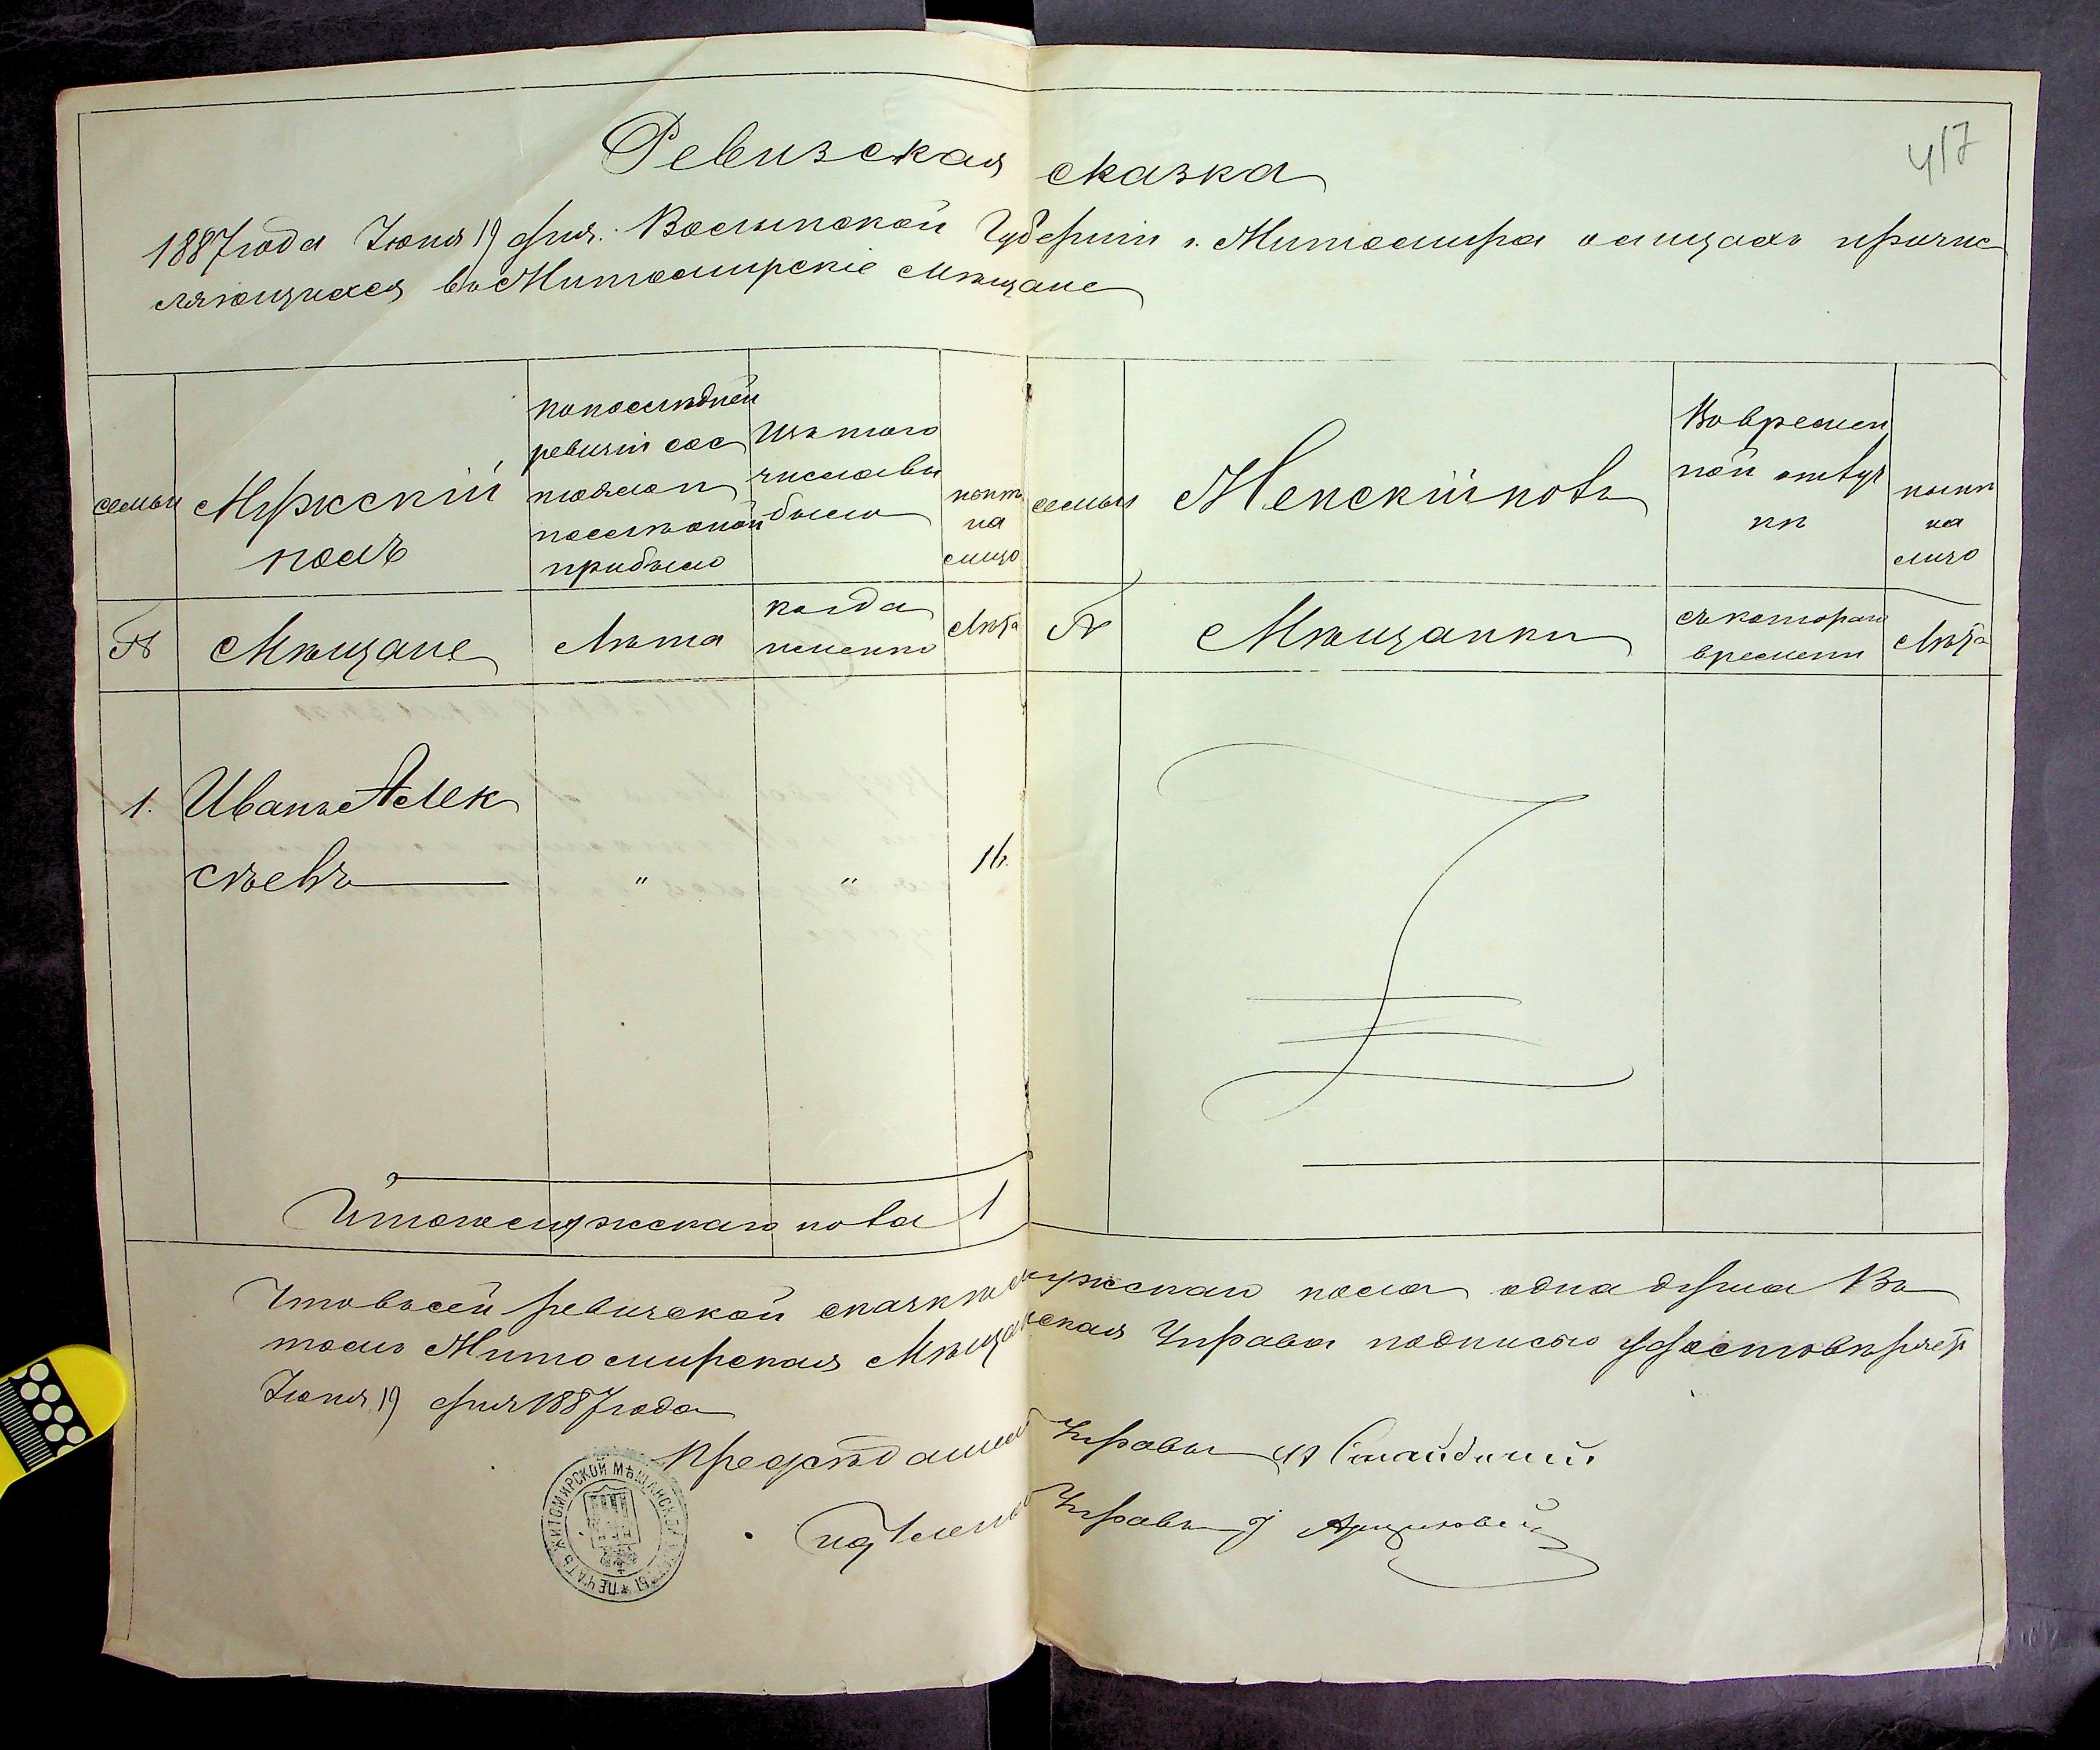 417
Ревизская сказка
1887 года Іюня 19 дня. Волынской Губерніи г. Житомира о лицахъ причис
ляющихся въ Житомирскіе Мѣщане
семьи
Мужскій
полъ
по последней
ревизіи сос
тояло и
после оной
прибыло
Изъ того
числа вы
было
ныне
на
лицо
семьи
Женскій полъ
Во времен
ной отлуч
ки
ныне
на
лицо
№
Мѣщане
Лѣта
когда
именно
Лѣта
№
Мѣщанки
съ котораго
времени
Лѣта
1. Иванъ Алек
сѣевъ " " 16.
Итого мужскаго пола 1
Что въ сей ревизской сказке мужскаго пола одна душа Въ
томъ Житомирская Мѣщанская Управа подписью удостовѣряетъ
Іюня 19 дня 1887 года
Председатель Управы
Членъ Управы
ПЕЧАТЬ ЖИТОМИРСКОЙ МѢЩАНСКОЙ УПРАВЫ